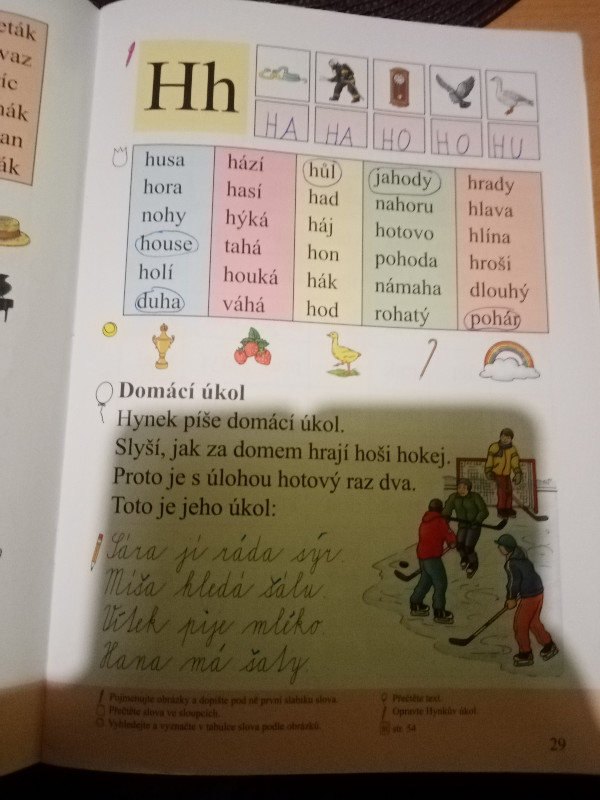 Hh
HA HA HO HO HU
husa hází hůl jahody hrady
hora hasí had nahoru hlava
nohy hýká háj hotovo hlína
house tahá hon pohoda hroši
holí houká hák námaha dlouhý
duha váhá hod rohatý pohár
Domácí úkol
Hynek píše domácí úkol.
Slyší, jak za domem hrají hoši hokej.
Proto je s úlohou hotový raz dva.
Toto je jeho úkol:
Sára jí ráda sýr.
Míša hledá šálu.
Vítek pije mlíko.
Hana má šaty.
Pojmenujte obrázky a dopište pod ně první slabiku slova.
Přečtěte slova ve sloupcích.
Vyhledejte a vyznačte v tabulce slova podle obrázků.
Přečtěte text.
Opravte Hynkův úkol.
str. 54
29